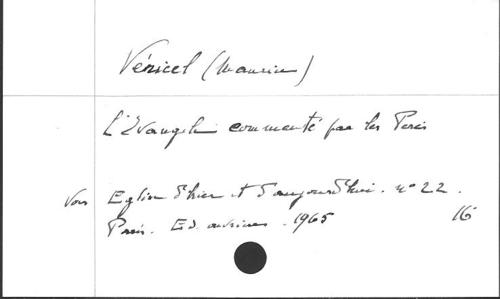 Véricel (Maurice)
L'Evangile commenté par les Pères
Voir Eglise d'hier et d'aujourd'hui. n° 22.
Paris. Ed. ouvrières. 1965 16